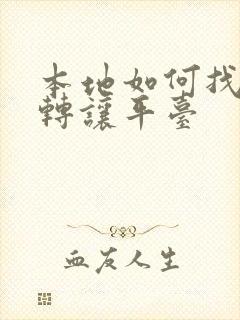 本地如何找
轉讓平臺
血友人生